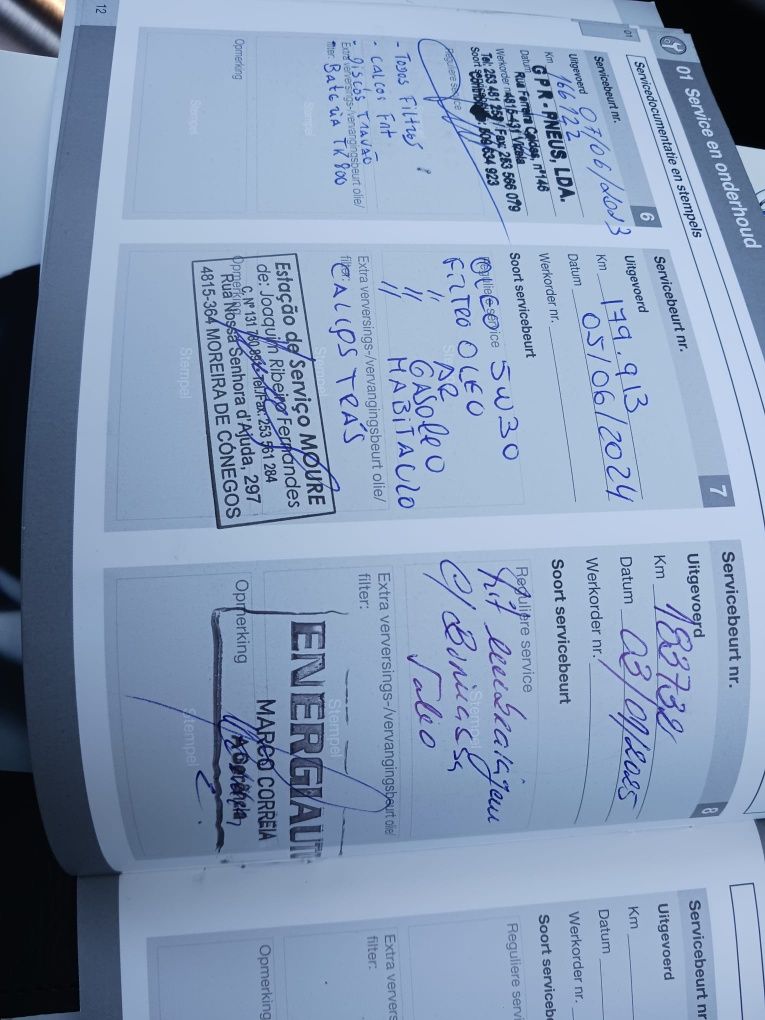 01 Service en onderhoud
Servicedocumentatie en stempels
01
Servicebeurt nr.
6
Uitgevoerd 07/06/2023
Km 166722
GPR-PNEUS, LDA.
Datum
Rua Ferreira Caldas, nº146
Werkorder nr. 4815-431 Vizela
Tel: 253 481 259 / Fax: 253 566 079
Soort servicebeurt: 509 634 923
Reguliere service
- Todos Filtros
- Calços Fnt
- Discos Travão
Extra verversings-/vervangingsbeurt olie/
filter:
Bateria TK 800
Opmerking
Stempel
12
Servicebeurt nr.
7
Uitgevoerd
Km 179.913
Datum 05/06/2024
Werkorder nr.
Soort servicebeurt
Reguliere service
OLEO 5W30
FILTRO OLEO
" AR
" GASOLEO
" HABITAULO
Extra verversings-/vervangingsbeurt olie/
filter:
CALIPS TRÁS
Stempel
Estação de Serviço MOURE
de: Joaquim Ribeiro Fernandes
Tel./Fax: 253 561 284
Opmerking
Rua Nossa Senhora d'Ajuda, 297
4815-364 MOREIRA DE CÓNEGOS
Stempel
Servicebeurt nr.
8
Uitgevoerd
Km 183732
Datum 03/01/2025
Werkorder nr.
Soort servicebeurt
Reguliere service
Kit embraiagem
C/ Bimassa
Valeo
Stempel
Extra verversings-/vervangingsbeurt olie/
filter:
Stempel
ENERGIAUT
MARCO CORREIA
Opmerking
A Gerência
Stempel
Servicebeurt nr
Uitgevoerd
Km
Datum
Werkorder nr.
Soort servicebe
Reguliere servi
Extra ververs
filter:
Opmerking